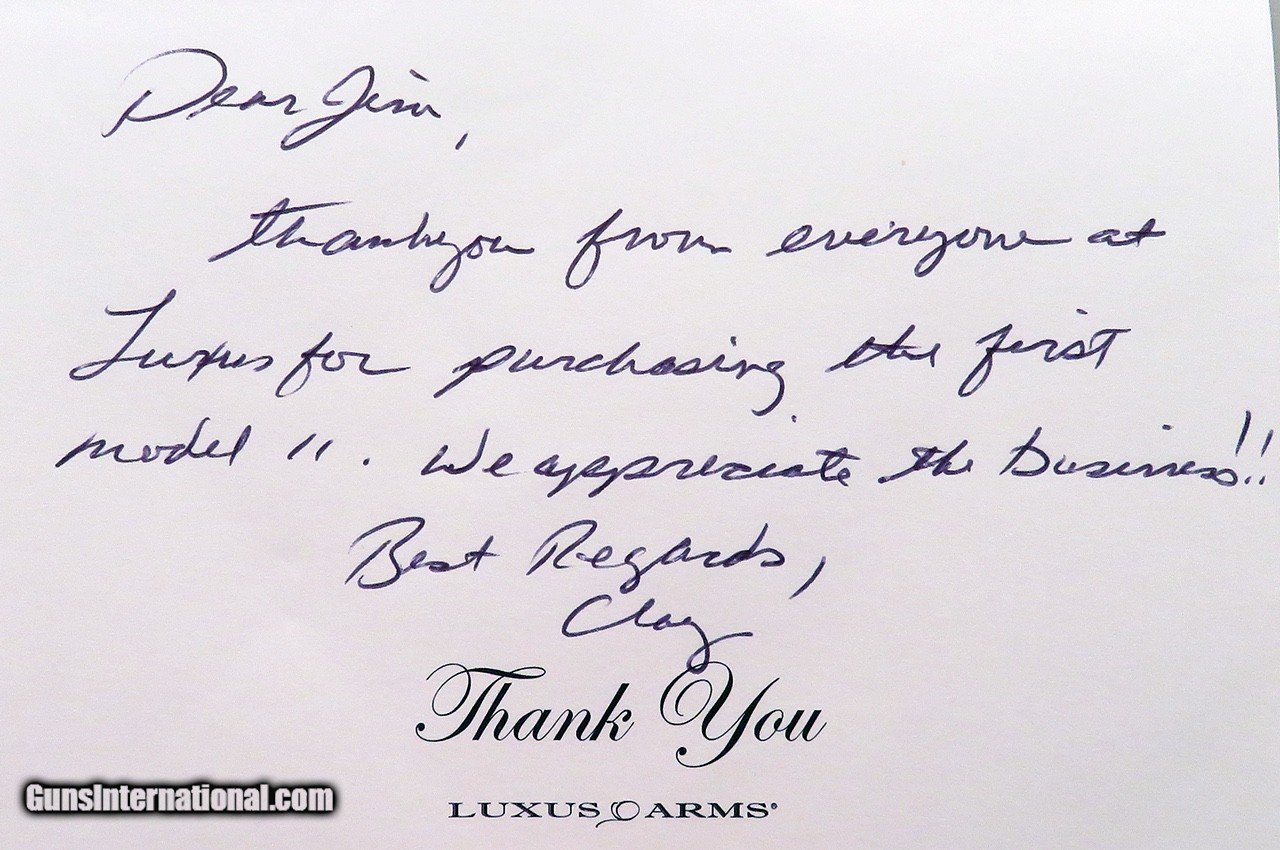 Dear Jim,
Thankyou from everyone at
Luxus for purchasing the first
model 11. We appreciate the business!!
Best Regards,
Clay
Thank You
LUXUS ARMS®
GunsInternational.com